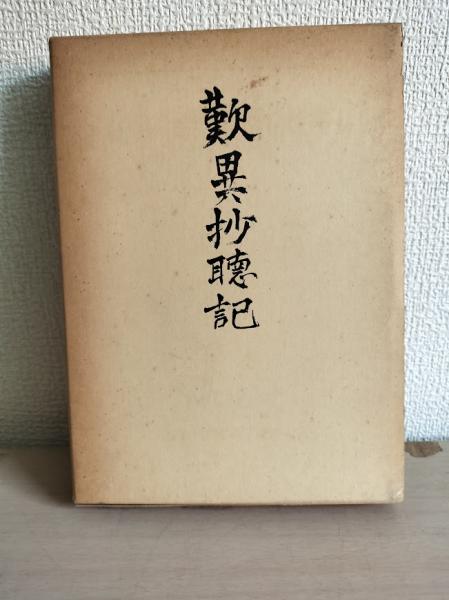 歎異抄聴記